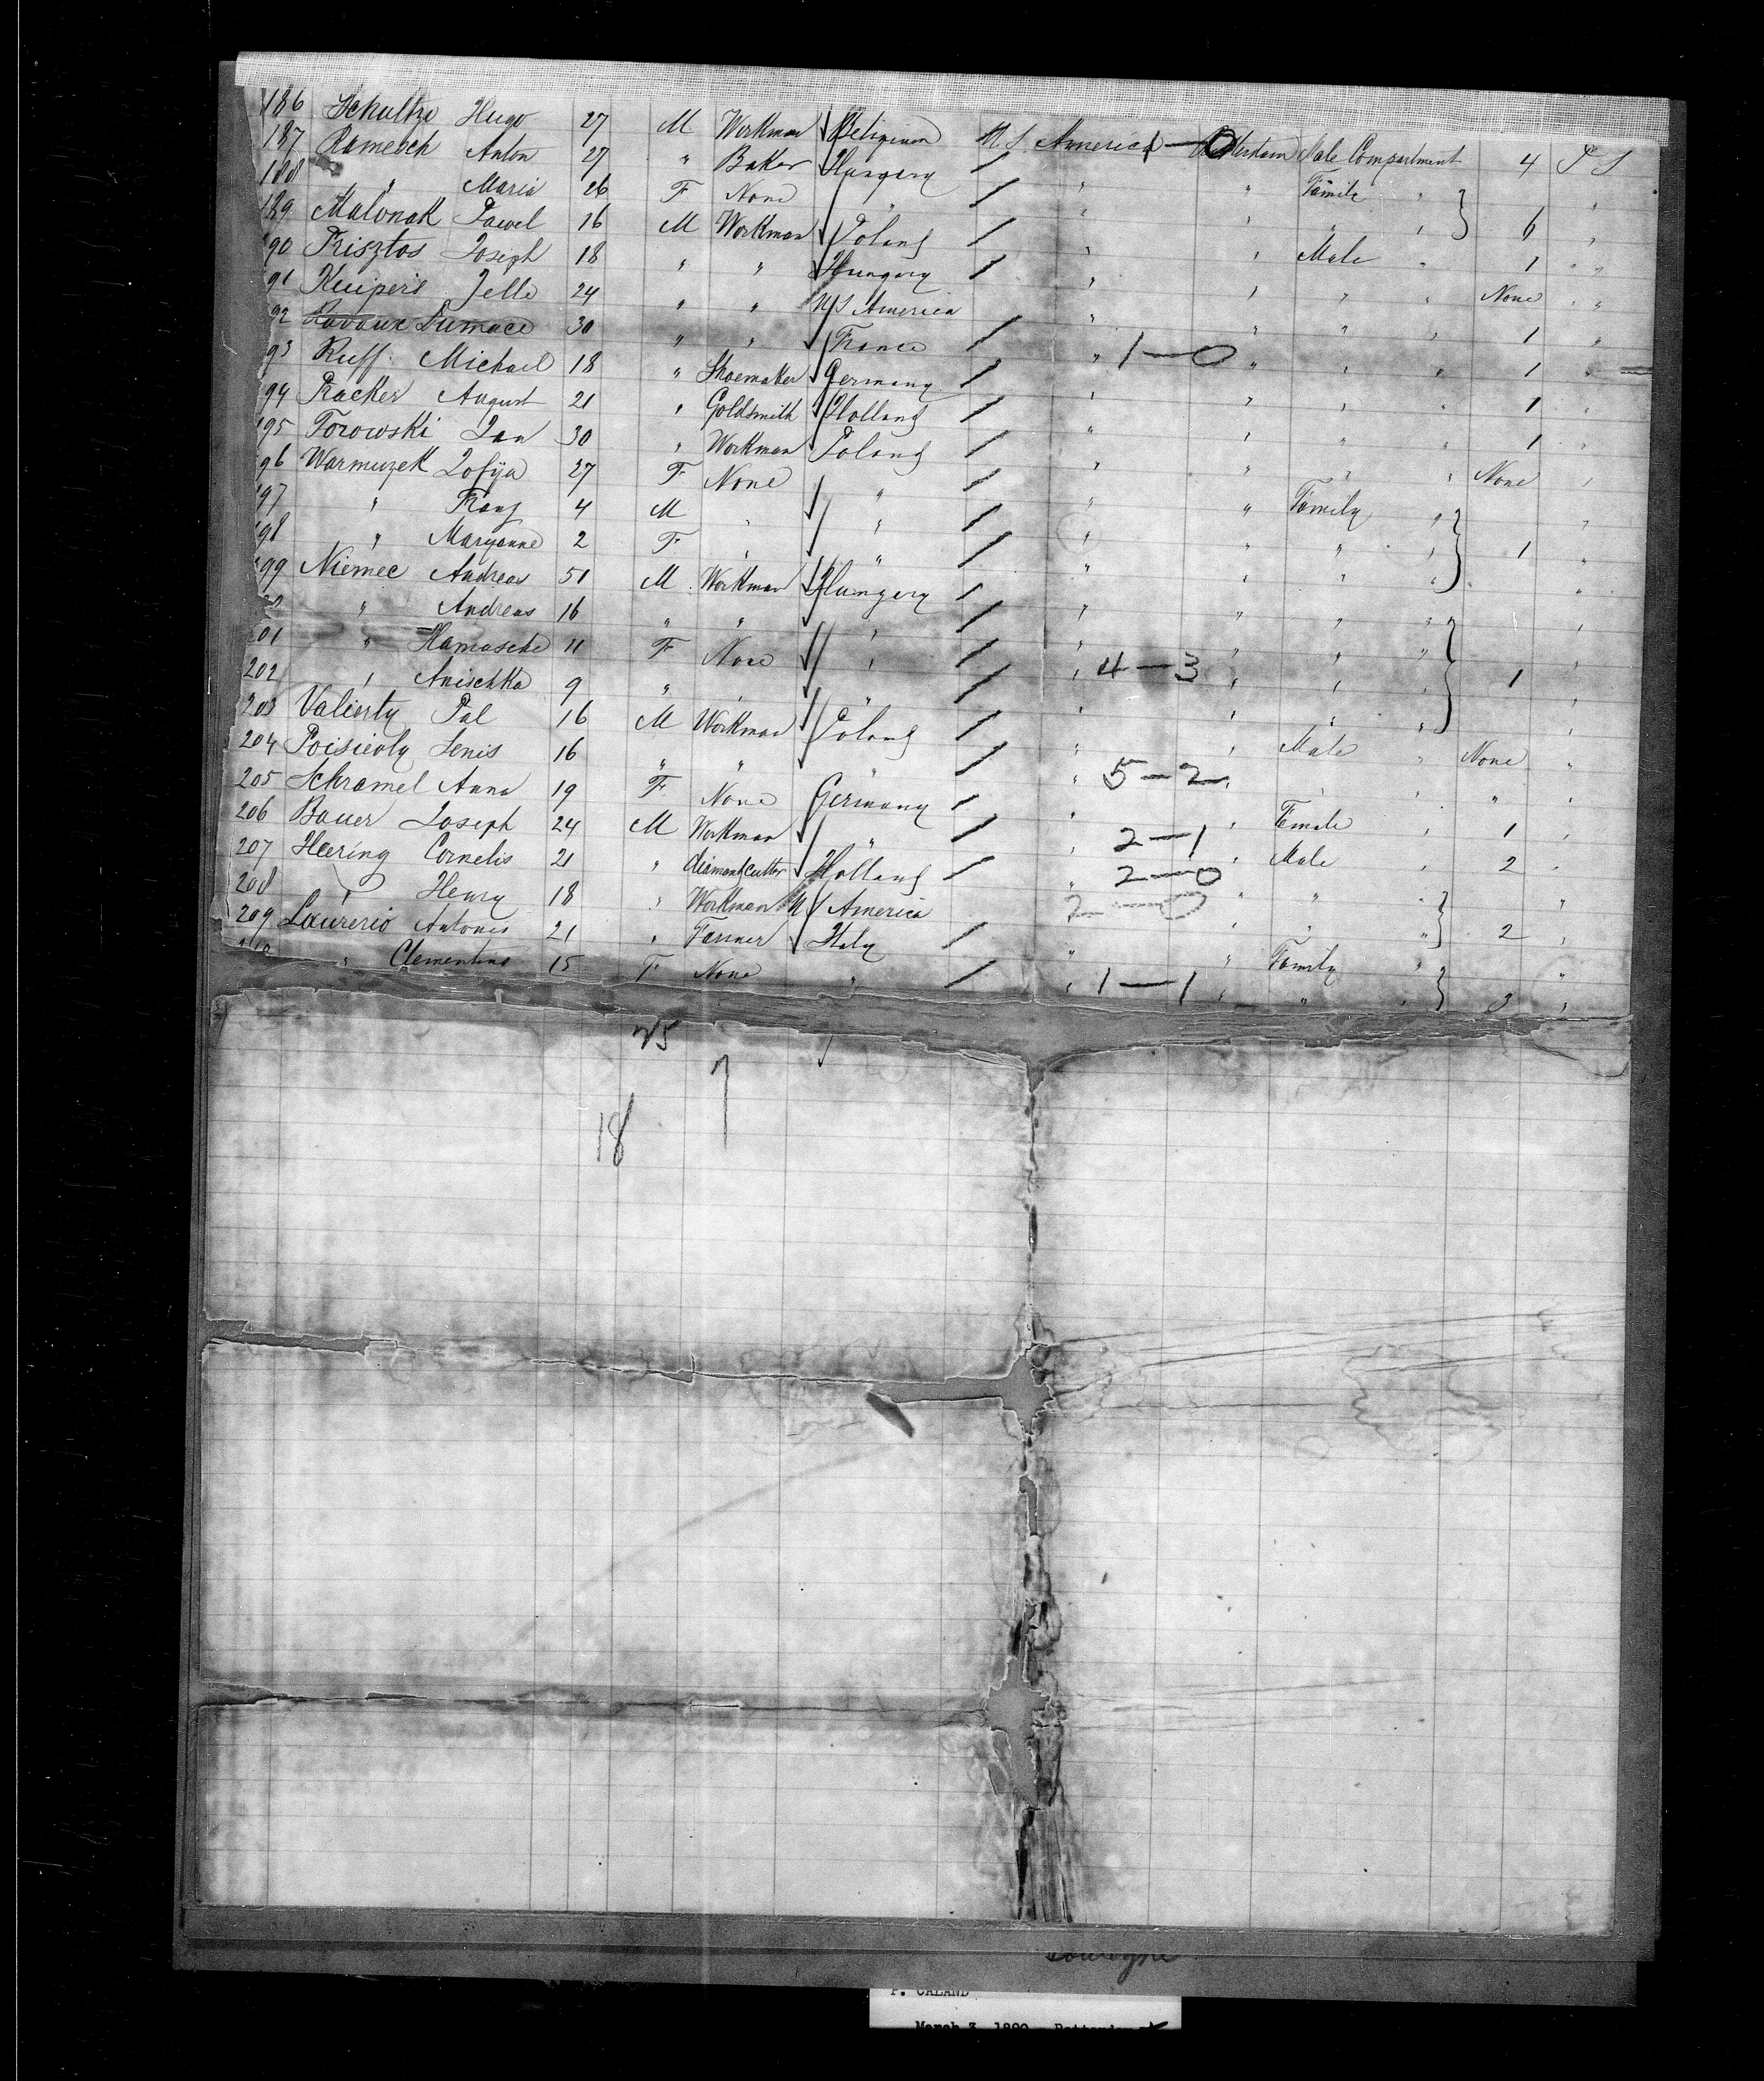 186 Schultze Hugo 27 M Workman Belgium U. S. America 1—0 Male Compartment 4 P S
187 Ramesch Anton 27 " Baker Hungary / " " Family "
188 " Maria 26 F None " / " " " " } 6 "
189 Malonak Pawel 16 M Workman Poland / " " Male " 1 "
190 Krisztos Joseph 18 " " Hungary / " " " " None "
191 Kuipers Jelle 24 " " U S America " " " " 1 "
92 Dumace 30 " " France / " 1—0 " " " 1 "
93 Ruff Michael 18 " Shoemaker Germany / " " " " 1 "
94 Racker August 21 " Goldsmith Holland / " " " " 1 "
95 Torowski Jan 30 " Workman Poland / " " " " None "
96 Warmuzek Zofija 27 F None " / " " Family " "
197 " Franz 4 M " " / " " " " } 1 "
198 " Maryanne 2 F " " / " " " " "
199 Niemec Andreas 51 M Workman Hungary / " " " " "
" Andreas 16 " " " / " " " " "
01 " Hamasche 11 F None " / " 4—3 " " " } 1 "
202 " Anischka 9 " " " / " " " " "
203 Valenty Pal 16 M Workman Poland / " " Male " None "
204 16 " " " / " 5—2 " " " " "
205 Schramel Anna 19 F None Germany / " " Female " 1 "
206 Bauer Joseph 24 M Workman " / " 2—1 " Male " 2 "
207 Heering Cornelis 21 " diamandcutter Holland / " 2—0 " " " "
208 " Henry 18 " Workman U S America 2—0 " " " " } 2 "
209 Laurerio Antonio 21 " Farmer Italy / " " Family " "
" Clementina 15 F None " / " 1—1 " " " } 3 "
25
7
18
P. CALAND
March 3, 1890 - Rotterdam